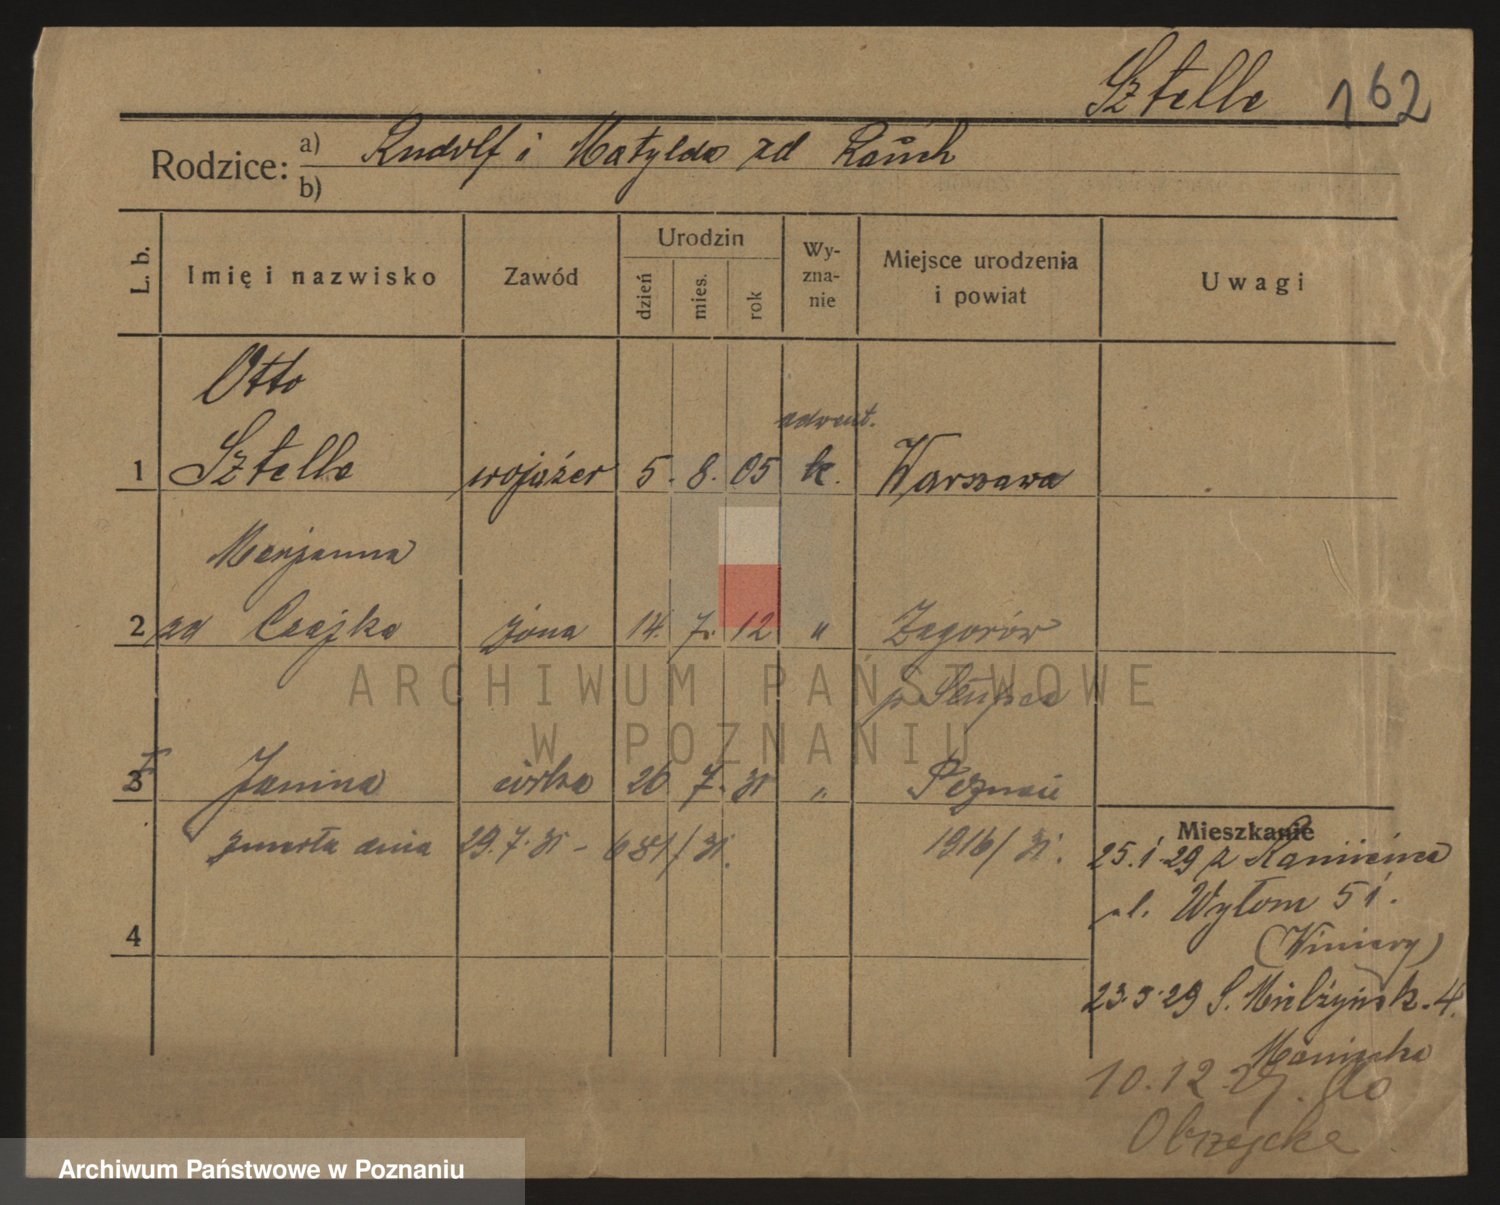 Sztelle 162
Rodzice: a) Rudolf i Matylda zd Rauch
b)
L. b. Imię i nazwisko Zawód Urodzin dzień mies. rok Wy-zna-nie Miejsce urodzenia i powiat Uwagi
Otto
advent.
1 Sztelle wojażer 5. 8. 05 k. Warszawa
Marjanna
2 zd Czajka żona 14. 7. 12 " Zagorów
p. Słupca
3 Janina córka 20 7. 31 " Poznań
zmarła dnia 29.7.31 - 681/31. 1916/31.
4
Mieszkanie
25.1.29 z Kamienica
ul. Wyłom 51.
(Winiary)
23.5.29 S. Mielżyńsk. 4.
10.12. do
Obrzycka
ARCHIWUM PAŃSTWOWE
W POZNANIU
Archiwum Państwowe w Poznaniu